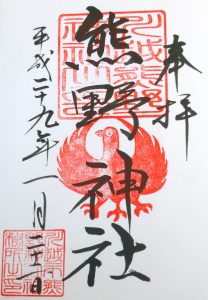 奉拝
熊野神社
平成二十九年一月二十二日